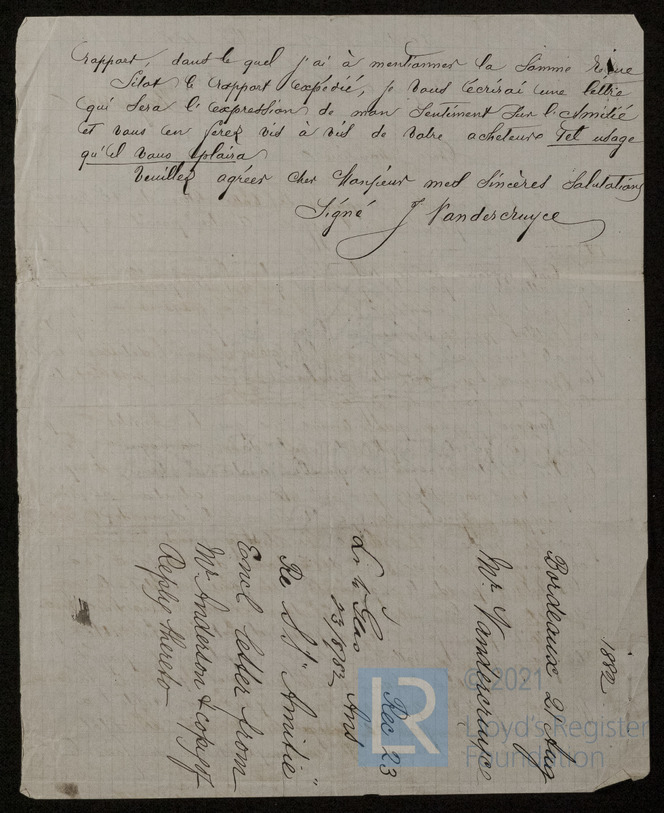 rapport, dans le quel j'ai à mentionner la somme reçue
Sitot le rapport expédié, je vous écrirai une lettre
qui sera l'expression de mon sentiment sur l'Amitié
et vous en ferez vis à vis de votre acheteur tel usage
qu'il vous plaira
Veuillez agréer cher Monsieur mes sincères Salutations
Signé J Vandercruyce
1882
Bordeaux 21 Aug
Mr Vandercruyce
Rec 23
Ans
23/8/82
Re SS "Amitié"
Encl letter from
Mr Anderson & copy of
Reply thereto
© 2021
Lloyd's Register
Foundation
LR